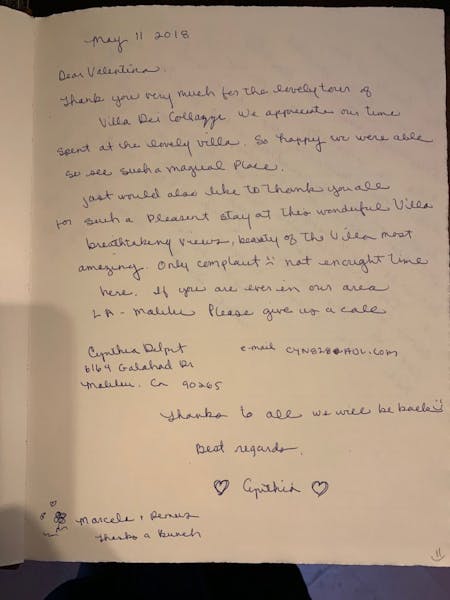 May 11 2018
Dear Valentina.
Thank you very much for the lovely tour of
Villa Dei Collazzi. We appreciate our time
spent at the lovely villa. So happy we were able
to see such a magical Place.
Just would also like to thank you all
for such a pleasent stay at this wonderful Villa
breathtaking views, beauty of the Villa most
amazing. Only complaint not enought time
here. If you are ever in our area
LA - Malibu Please give us a call
Cynthia e-mail
6169 Galahad Dr
Malibu. Ca 90265
Thanks to all we will be back
Best regards.
♡ Cynthia ♡
Marcela +
Thanks a Bunch